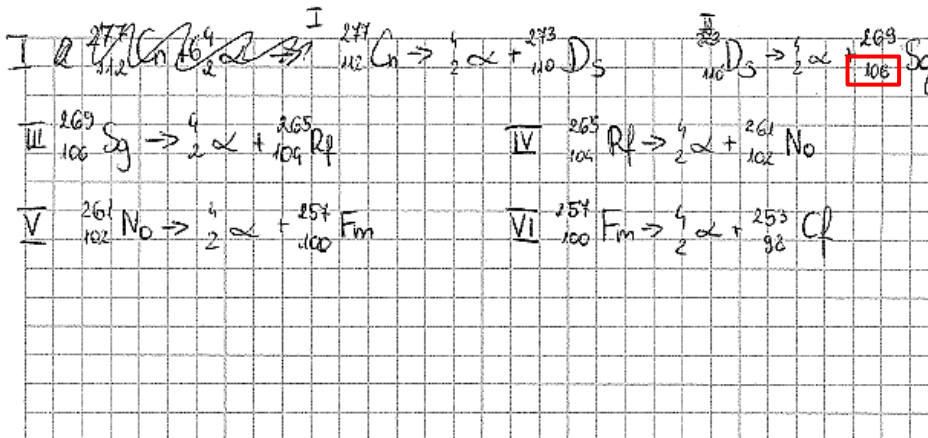 I
I a ²⁷⁷₁₁₂Cn → ⁴₂α + ²⁷³₁₁₀Ds II ₁₁₀Ds → ⁴₂α + ²⁶⁹₁₀₆Sg
III ²⁶⁹₁₀₆Sg → ⁴₂α + ²⁶⁵₁₀₄Rf IV ²⁶⁵₁₀₄Rf → ⁴₂α + ²⁶¹₁₀₂No
V ²⁶¹₁₀₂No → ⁴₂α + ²⁵⁷₁₀₀Fm VI ²⁵⁷₁₀₀Fm → ⁴₂α + ²⁵³₉₈Cf